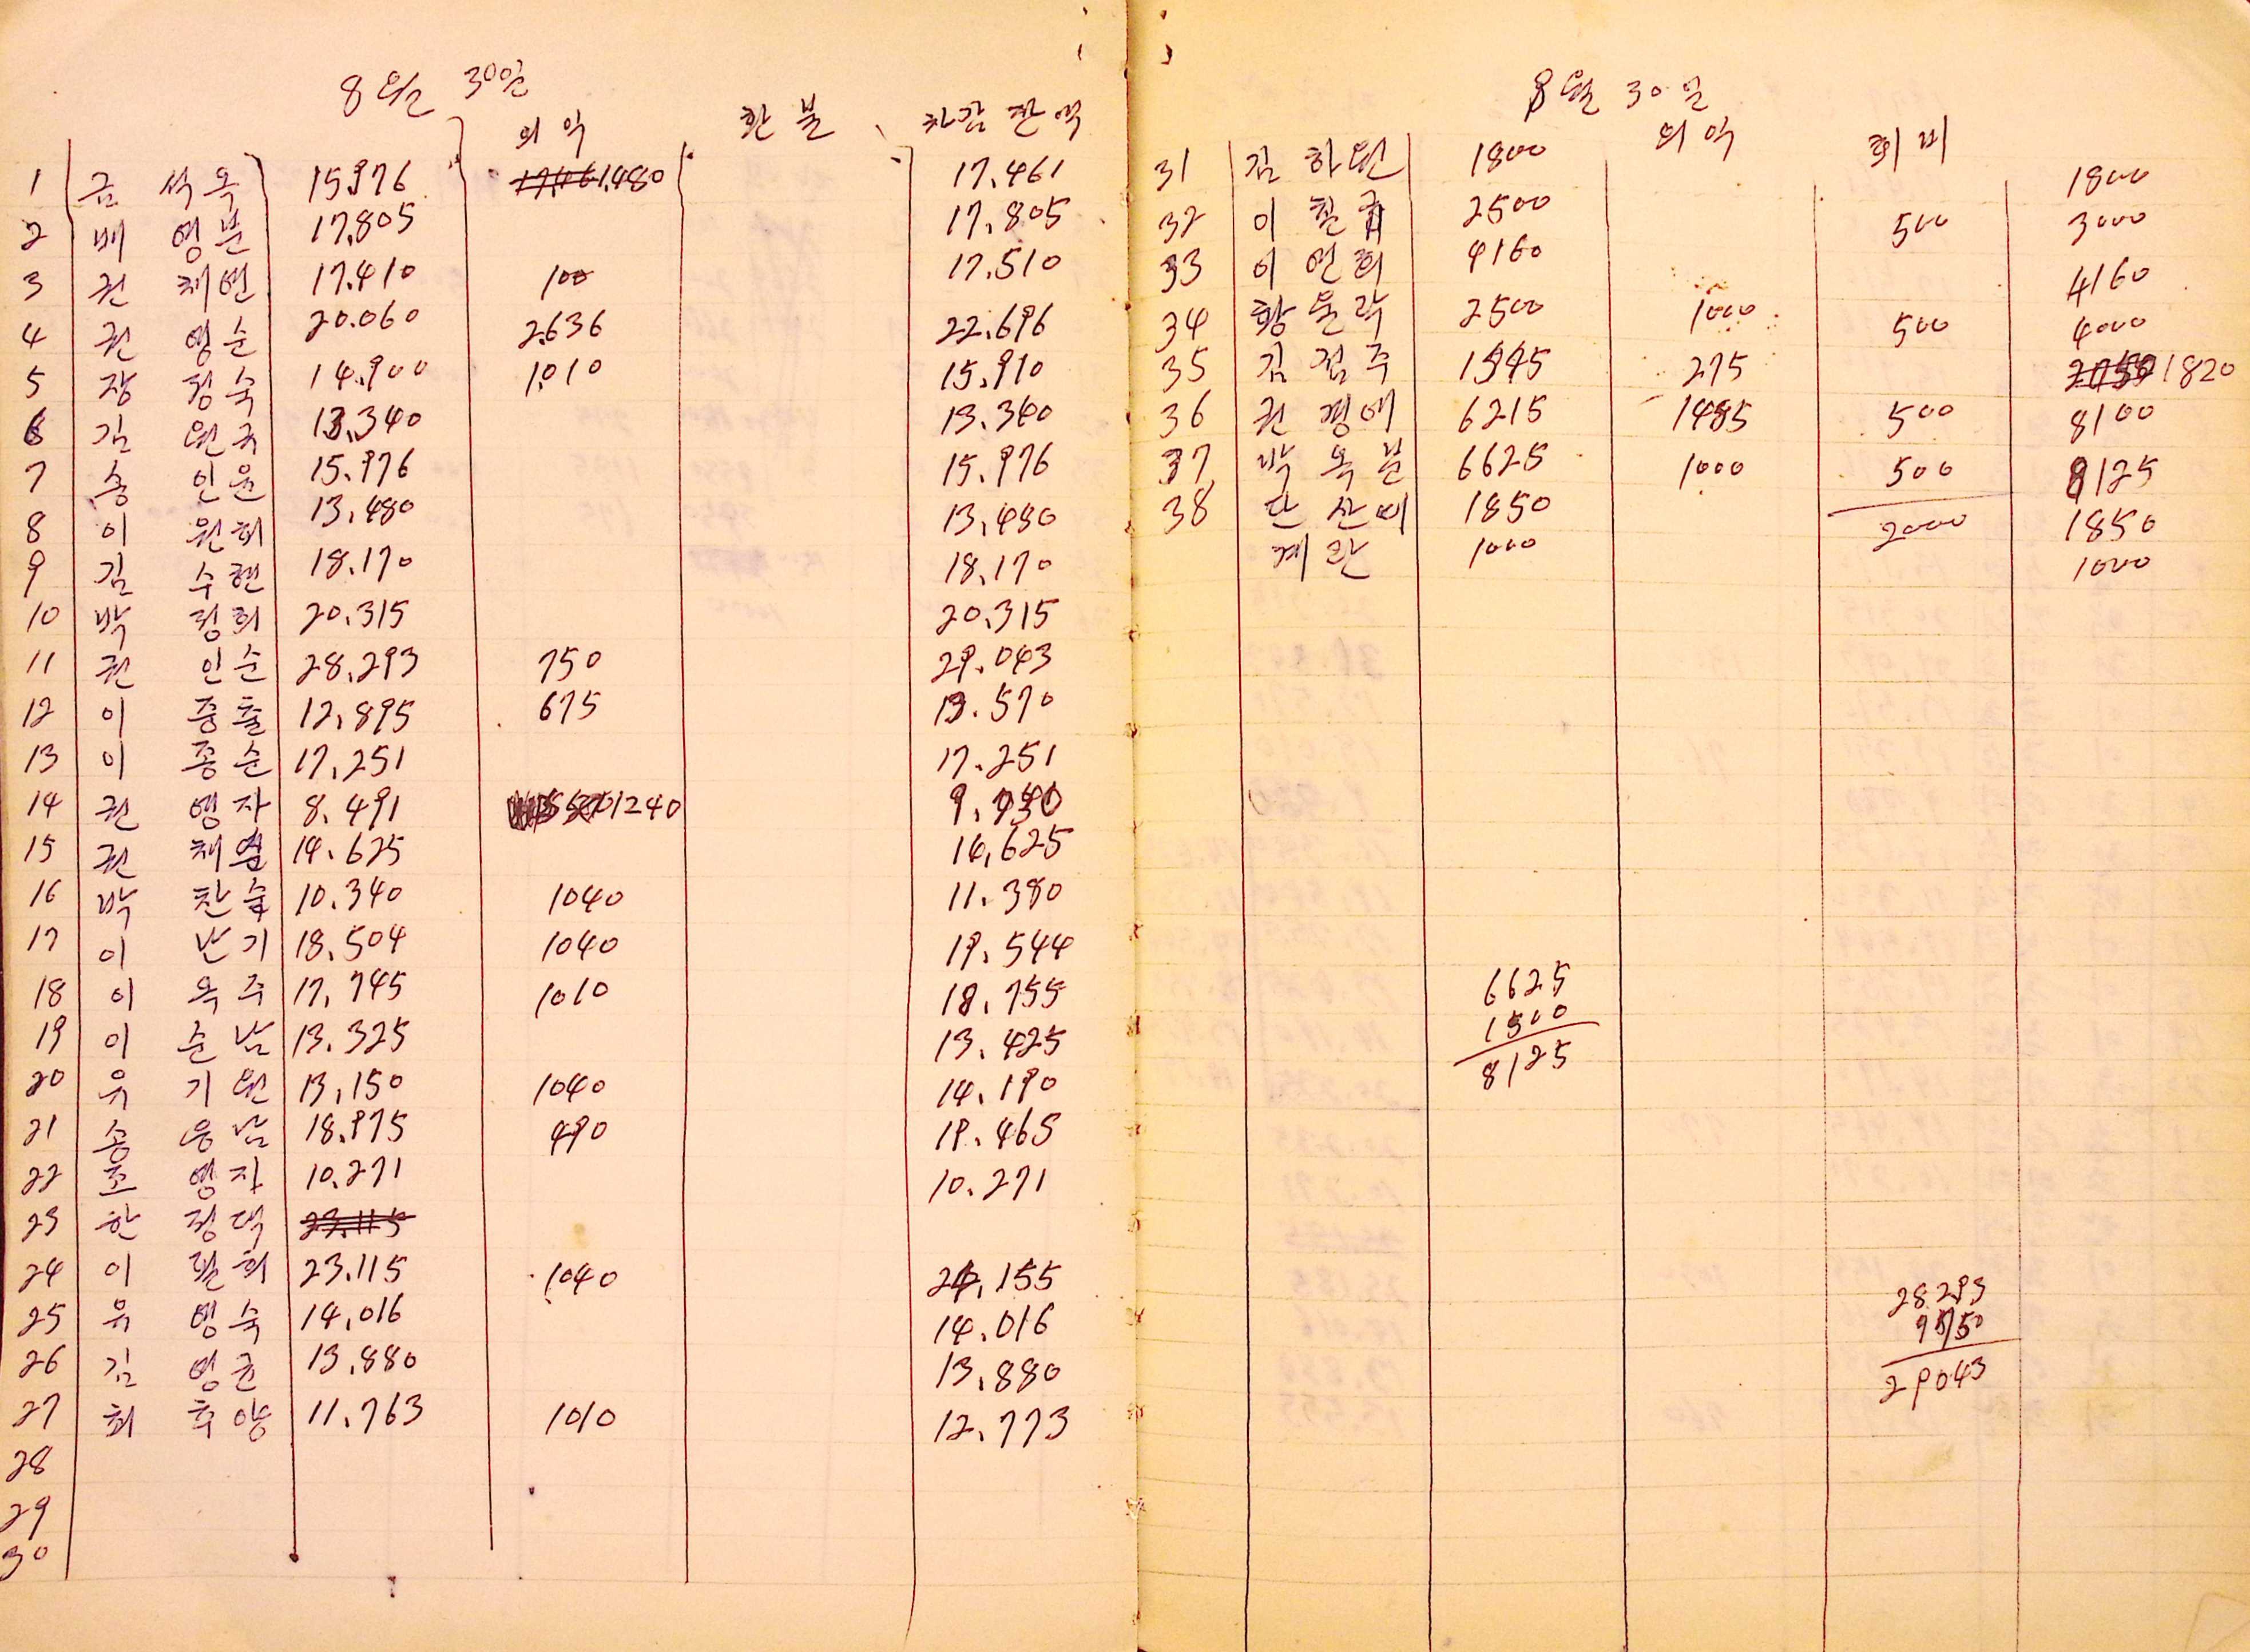 8월 30일
의익 환불 차감잔액
1 금석옥 15,976 1,480 17,461
2 배영분 17,805 17,805
3 권채연 17,410 100 17,510
4 권영순 20,060 2,636 22,696
5 장정숙 14,900 1,010 15,910
6 김원규 13,340 13,340
7 송인윤 15,976 15,976
8 이원희 13,480 13,480
9 김수현 18,170 18,170
10 박정희 20,315 20,315
11 권인순 28,293 750 29,043
12 이중출 12,895 675 13,570
13 이종순 17,251 17,251
14 권영자 8,491 1240
15 권채열 14,625 14,625
16 박찬숙 10,340 1040 11,380
17 이난기 18,504 1040 19,544
18 이옥주 17,745 1010 18,755
19 이순남 13,325 13,425
20 유기원 13,150 1040 14,190
21 송응남 18,975 490 19,465
22 조영자 10,271 10,271
23 한정택 23,115
24 이필희 23,115 1040 24,155
25 유영숙 14,016 14,016
26 김영균 13,880 13,880
27 최후양 11,763 1010 12,773
28
29
30
8월 30일
의익 회비
31 김하원 1800 1800
32 이필규 2500 500 3000
33 이연희 4160 4160
34 황문락 2500 1000 500 4000
35 김점주 1545 275 1820
36 권경애 6215 1485 500 8100
37 박옥분 6625 1000 500 8125
38 단산비 1850 2000 1850
계란 1000 1000
6625
1500
8125
28293
750
29043